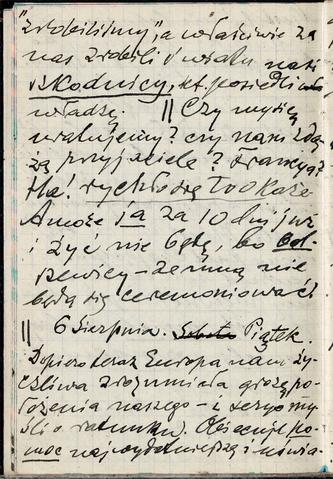 "zrobiliśmy", a właściwie za
nas zrobili i wielu nasi
szkodnicy, kt. posiedli
władzę. || Czy myślą
uratujemy? czy nam zdą-
żą przyjaciele? Francya?
Ha! rychło się to okaże
A może ja za 10 dni już
i żyć nie będę, bo bol-
szewicy – ze mną nie
będą się ceremoniować!
|| 6 Sierpnia. Sobota Piątek.
Dopiero teraz Europa nam ży-
czliwa zrozumiała grozę po-
łożenia naszego – i serjo my-
śli o ratunku. Obiecuje po-
moc najwydatniejszą i mówia-